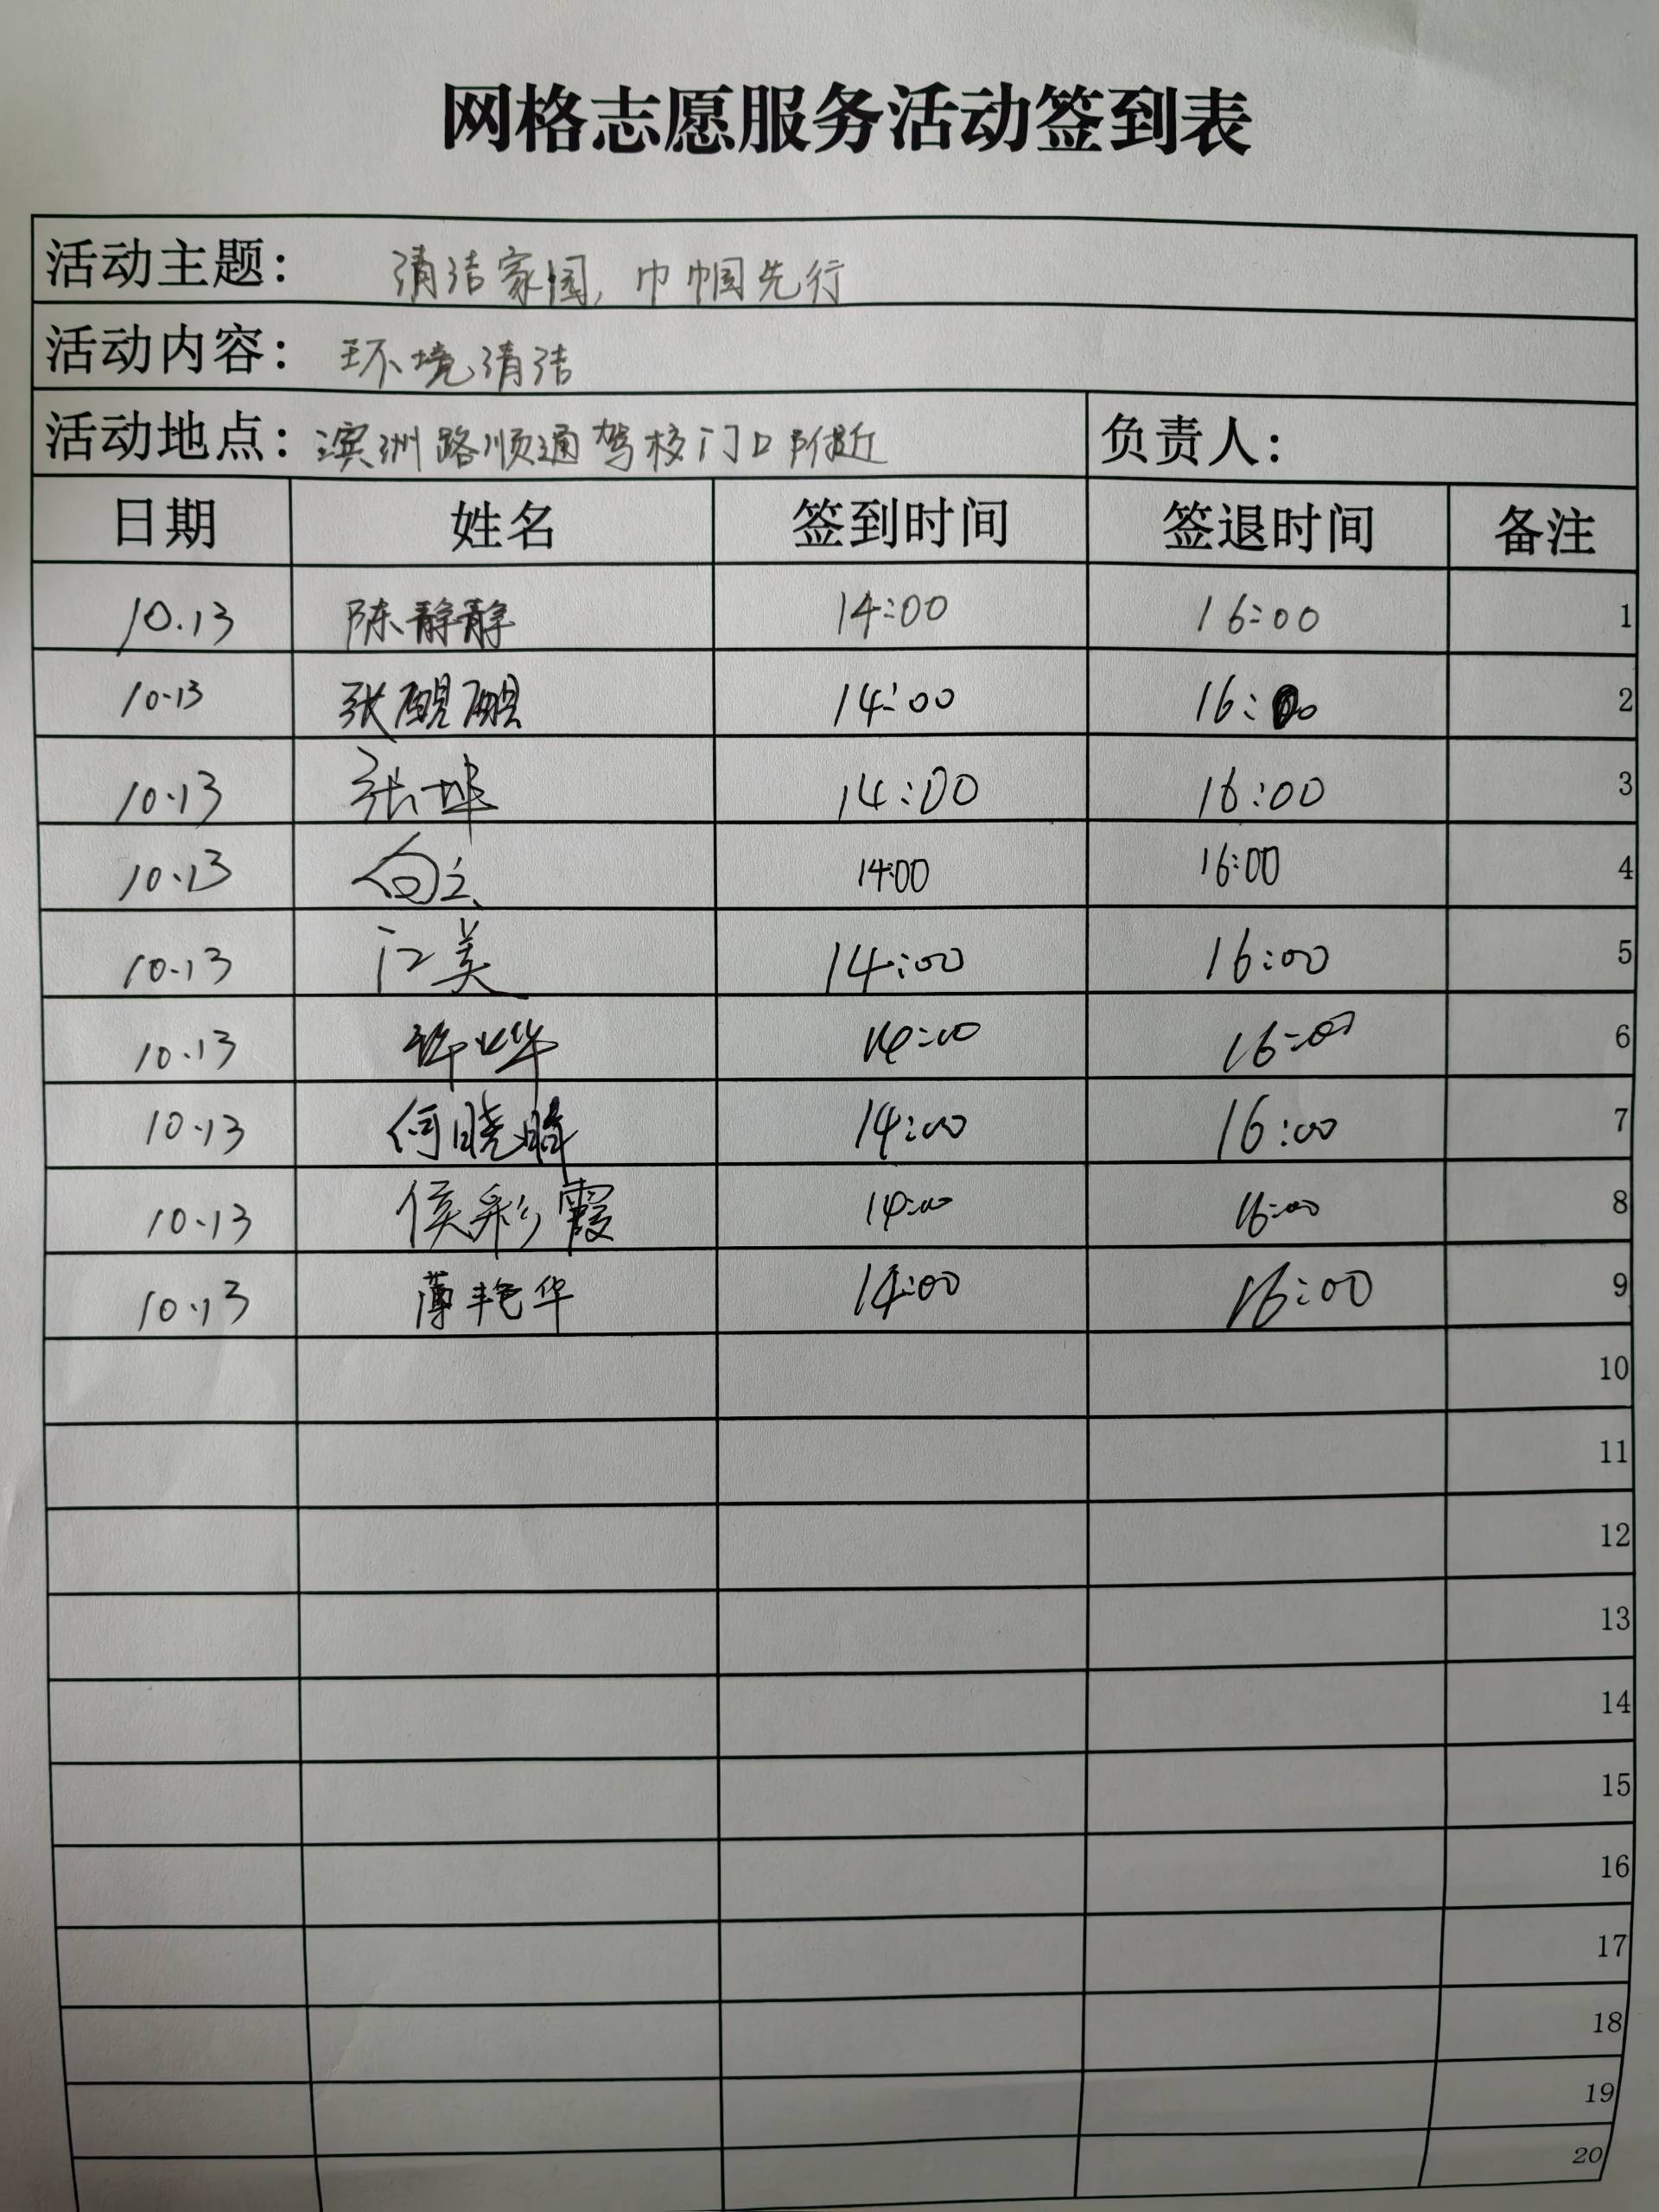 网格志愿服务活动签到表
活动主题: 清洁家园,巾帼先行
活动内容: 环境清洁
活动地点: 滨洲路顺通驾校门口附近 负责人:
日期 姓名 签到时间 签退时间 备注
10.13 陈静静 14:00 16:00 1
10.13 张 14:00 16:00 2
10.13 张 14:00 16:00 3
10.13 向立 14:00 16:00 4
10.13 江美 14:00 16:00 5
10.13 许烨 14:00 16:00 6
10.13 何晓 14:00 16:00 7
10.13 侯彩霞 14:00 16:00 8
10.13 薄艳华 14:00 16:00 9
10
11
12
13
14
15
16
17
18
19
20